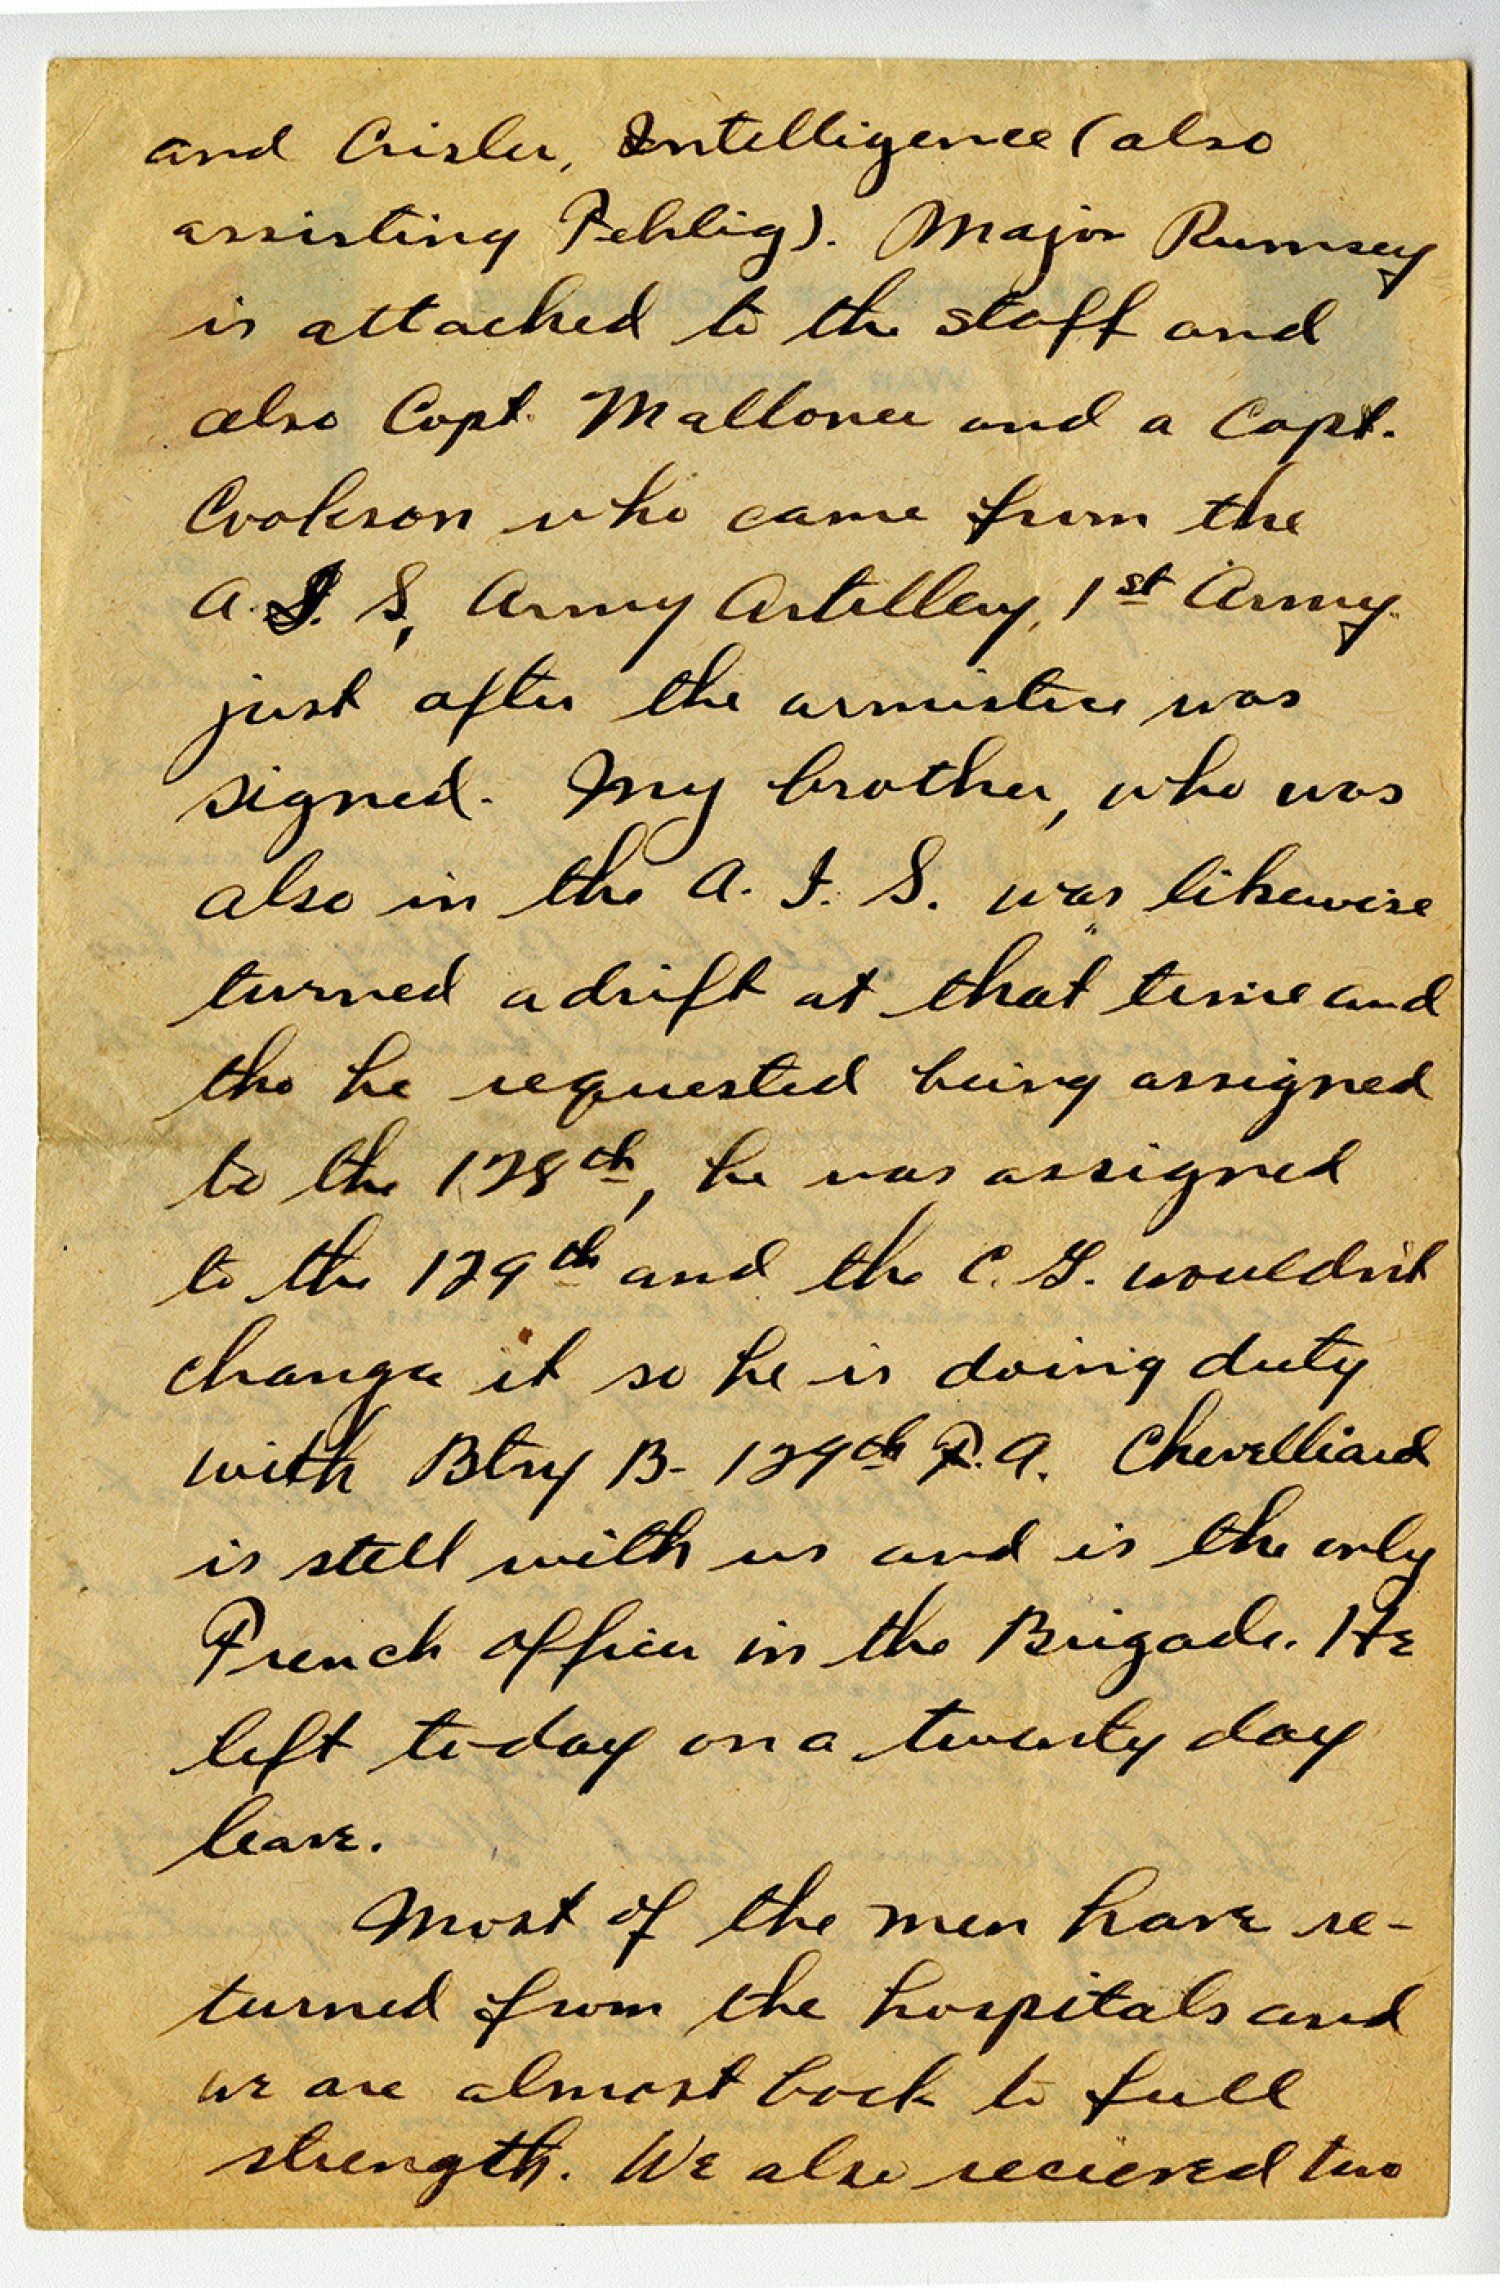 and Crisler, Intelligence (also
assisting Fehlig). Major Rumsey
is attached to the staff and
also Capt. Mallonee and a Capt.
Cookson who came from the
A. I. S, Army Artillery, 1st Army.
just after the armistice was
signed. My brother, who was
also in the A. I. S. was likewise
turned adrift at that time and
tho he requested being assigned
to the 128th, he was assigned
to the 129th and the C. G. wouldn't
change it so he is doing duty
with Btry B- 129th F. A. Chevelliard
is still with us and is the only
French officer in the Brigade. He
left to-day on a twenty day
leave.
Most of the men have re-
turned from the hospitals and
we are almost back to full
strength. We also recieved two